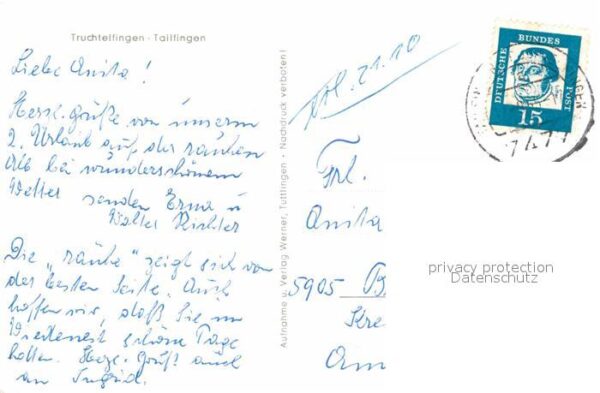 Truchtelfingen - Tailfingen
Liebe Anita!
Herzl. Grüße von unserem
2. Urlaub auf der rauhen
Alb bei wunderschönem
Wetter senden Erna u.
Walter Richter
Die „rauhe" zeigt sich von
der besten Seite. Auch
hoffen wir, daß Sie im
schöne Tage
hatten. Herzl. Grüße auch
an Ingrid.
Aufnahme u. Verlag Werner, Tuttlingen - Nachdruck verboten!
21.10
DEUTSCHE BUNDES POST
15
Frl.
Anita
5905 B
Kre
Am
privacy protection
Datenschutz